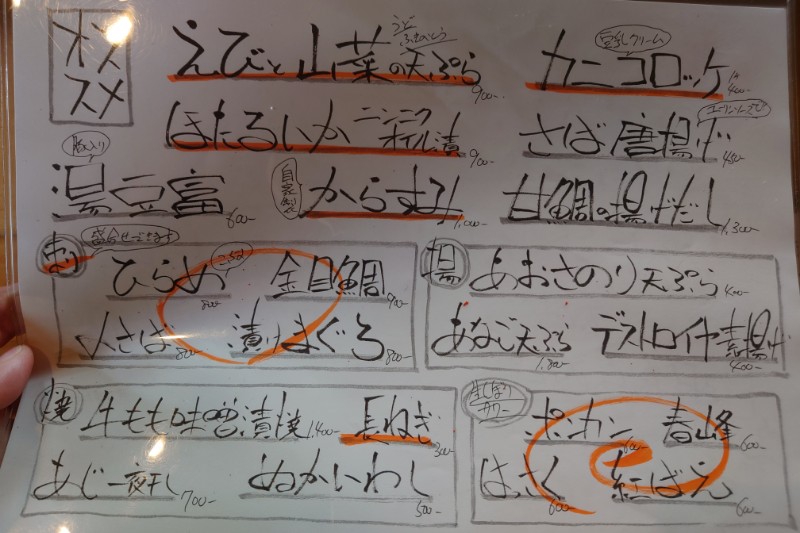 オススメ
えびと山菜の天ぷら 900-
豆乳クリーム
カニコロッケ 400-
ほたるいか ニンニクオイル漬 900-
さば唐揚げ 480-
湯豆富 600-
自家製
からすみ 1,000-
甘鯛の揚げだし 1,300-
刺
盛合せできます
ひらめ 800-
こぶじめ
金目鯛 900-
〆さば 800-
漬けまぐろ 800-
揚
あおさのり天ぷら 400-
あなご天ぷら 1,800-
デストロイヤ素揚げ 400-
焼
牛もも味噌漬焼 1,400-
長ねぎ 300-
あじ一夜干し 700-
ぬかいわし 500-
生しぼりサワー
ポンカン 600-
春峰 600-
はっさく 600-
紅ばえ 600-